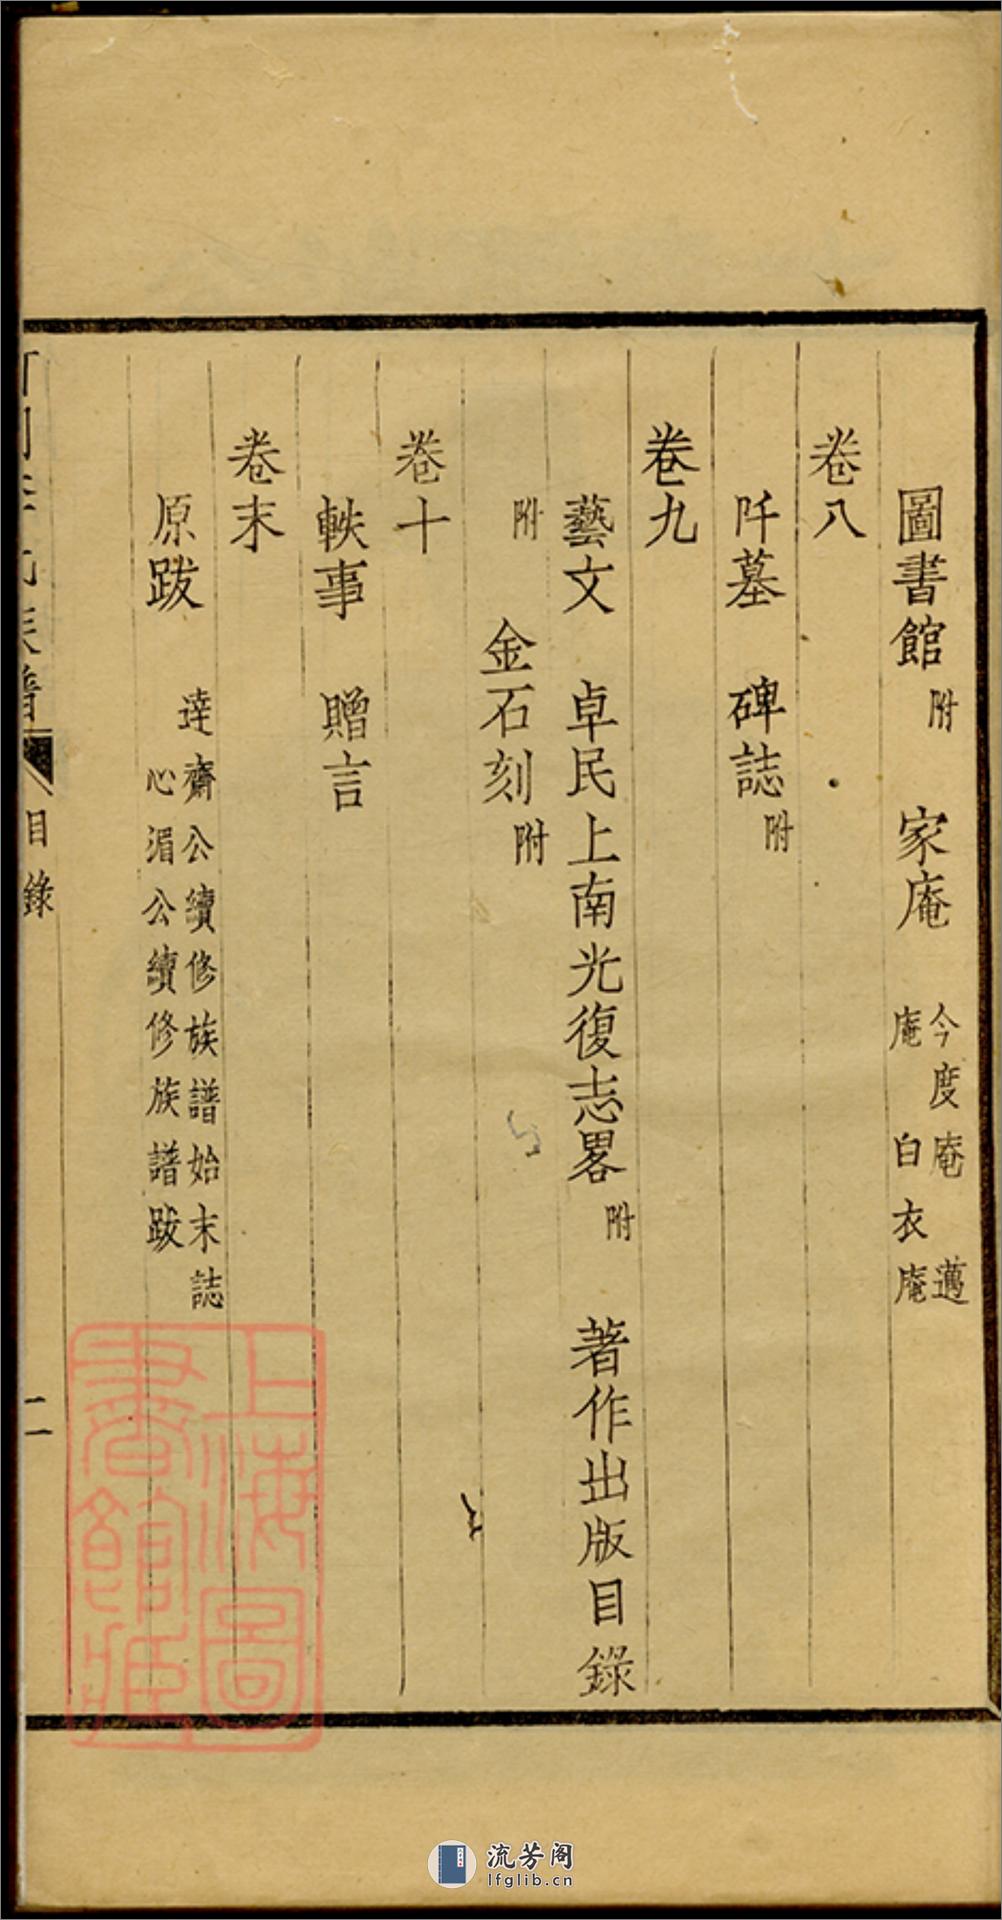 圖書館附　家庵　今度庵　邁
庵　白衣庵
卷八
阡墓　碑誌附
卷九
藝文　卓民上南光復志畧附　著作出版目錄
附　金石刻附
卷十
軼事　贈言
卷末
原跋　達齋公續修族譜始末誌
心湄公續修族譜跋
氏族譜　目錄　二
上海圖
書館藏
流芳阁
lfglib.cn